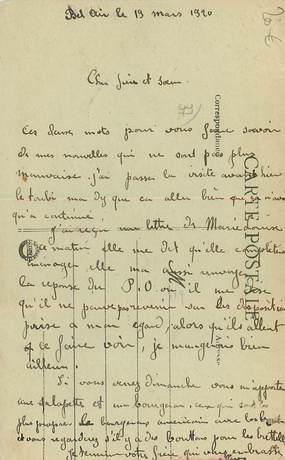 Bel Air le 19 mars 1920
Cher frère et sœur.
Ces deux mots pour vous faire savoir
de mes nouvelles qui ne sont pas plus
mauvaise j'ai passer la visite avant hier
le toubi ma dy que ca aller bien que
qu'a continué
j'ai reçu une lettre de Marie Louise
ce matin elle me dit qu'elle
ménage elle ma aussi
la reponse du P.O. il me dise
qu'il ne peuve pas revenir sur les disposition
prise a mon egard, alors qu'ils allent
ce faire voir, je mangerais bien
ailleurs.
Si vous venez dimanche vous m'apporter
une salopette et un bourgeron, ceux qui sont
plus propres. Le bourgeron americain avec les
et vous regarderez s'il y a des bouttons pour les bretelles
je termine votre frère qui vous embrasse
CARTE POSTALE
Correspondance
Adresse